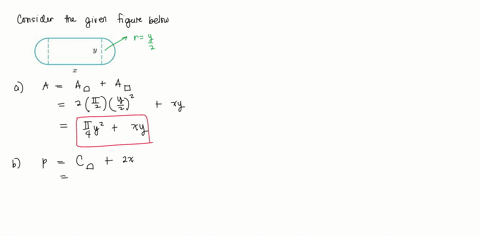 Consider the given figure below
r = y/2
y
x
a) A = A⌓ + A□
= 2 (π/2) (y/2)² + xy
= π/4 y² + xy
b) P = C⌓ + 2x
=